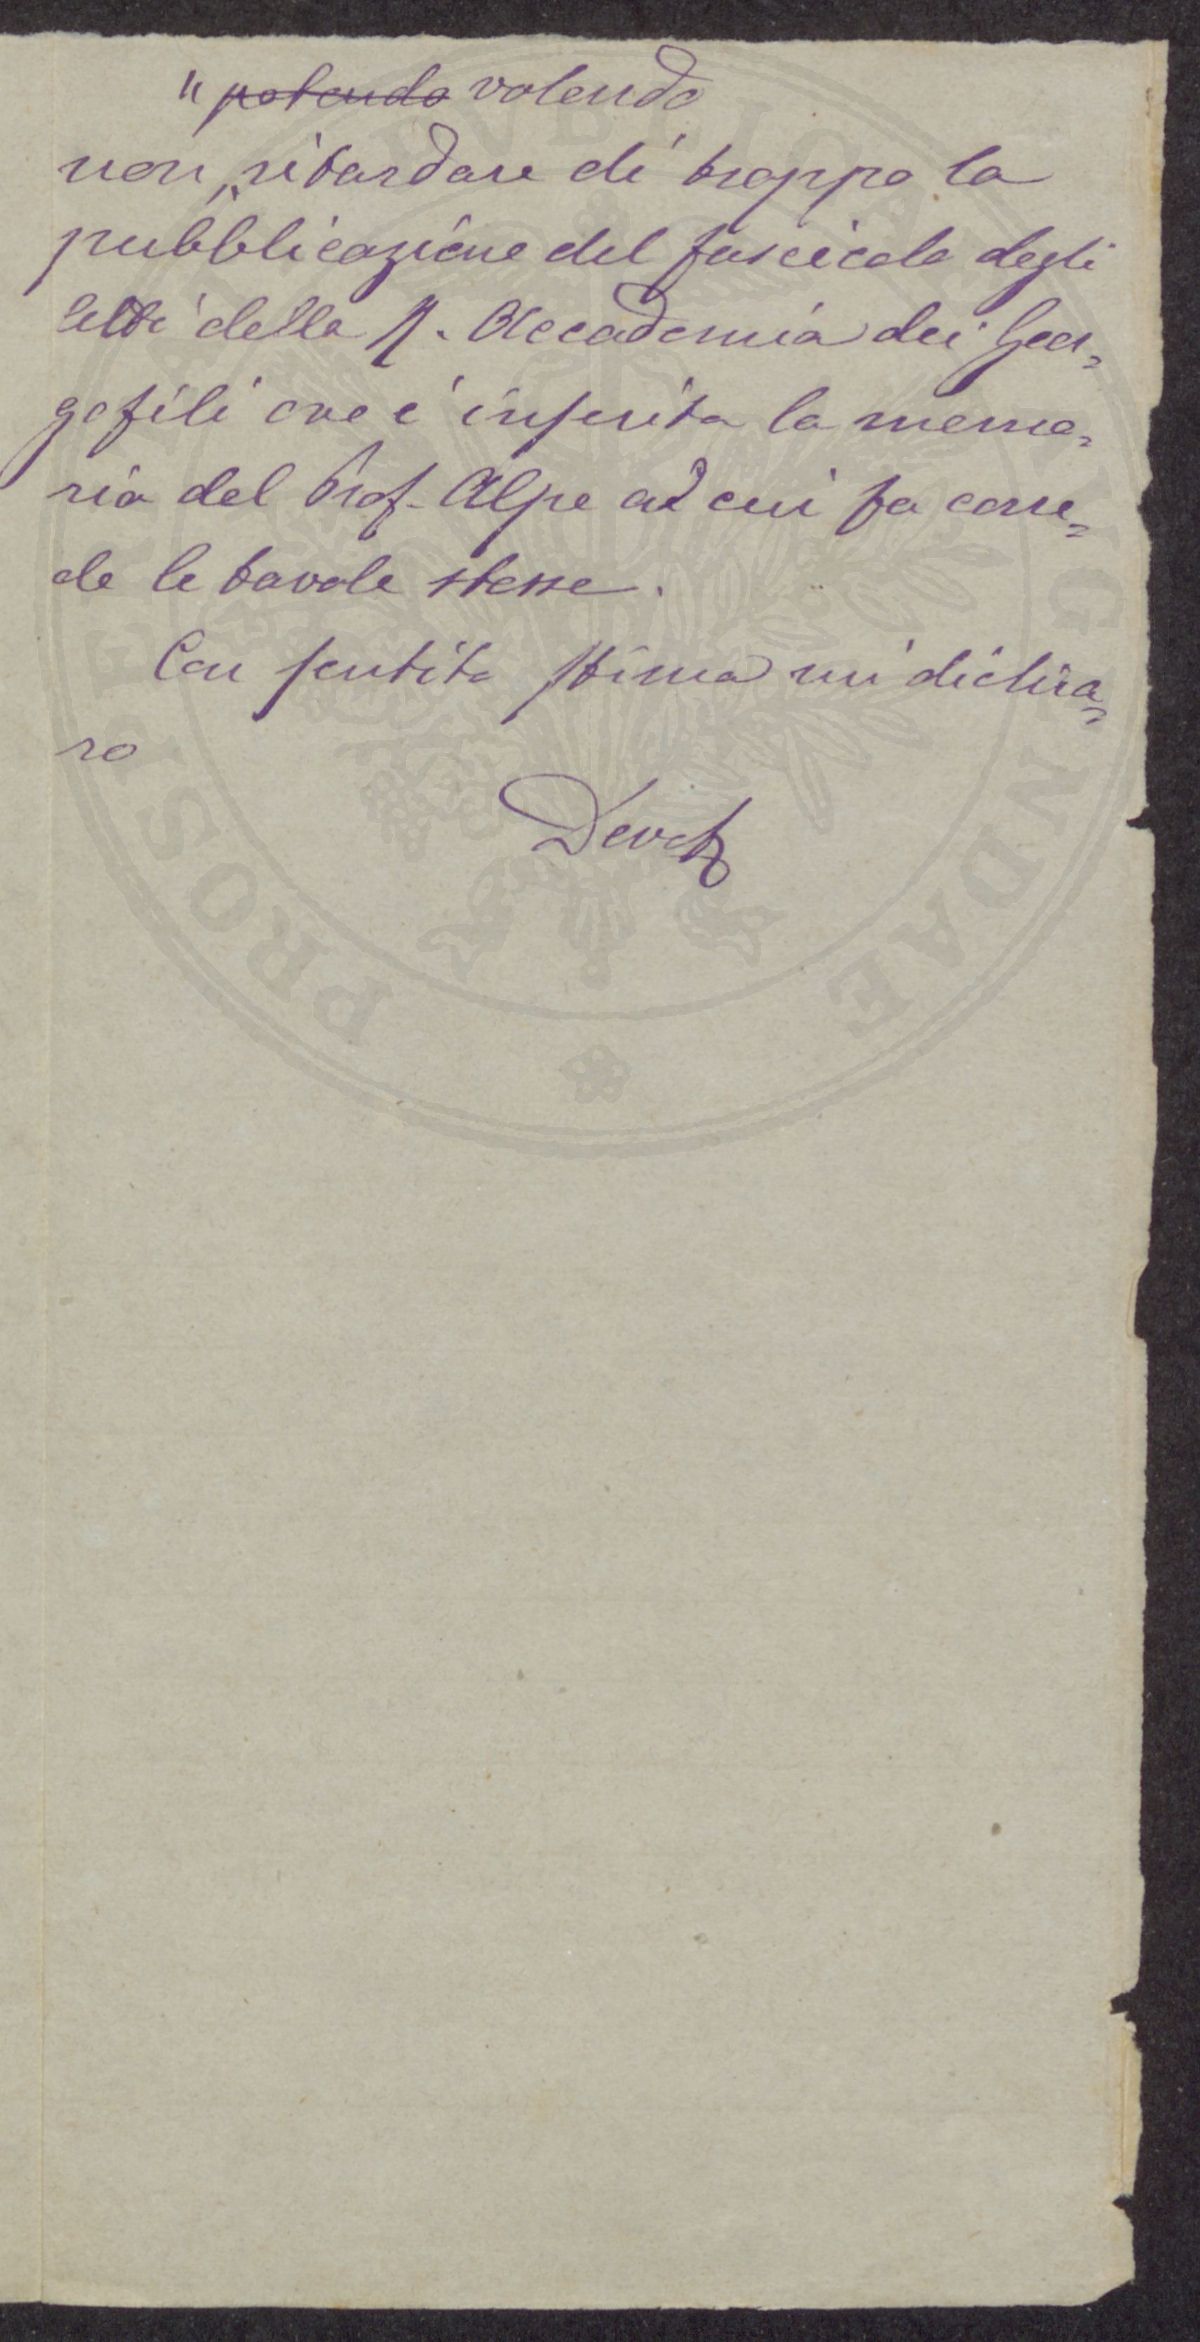 " potendo volendo
non " ritardare di troppo la
pubblicazione del fascicolo degli
Atti della R. Accademia dei Geor=
gofili ove è inserita la memo=
ria del Prof. Alpe ad cui fa corre=
do le tavole stesse.
Con sentita stima mi dichia=
ro
PROSPERITATI PVBLICAE AVGENDAE